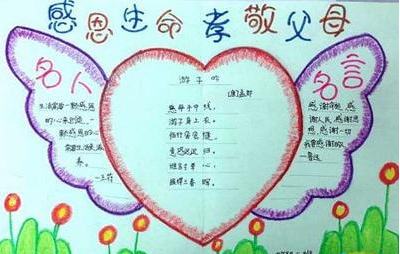 感恩生命孝敬父母
名人
生活需要一颗感恩
的心来创造,一
颗感恩的心
需要生活来滋
养。
—王符
游子吟
孟郊
慈母手中线,
游子身上衣。
临行密密缝,
意恐迟迟归。
谁言寸草心,
报得三春晖。
名言
感谢命运,感
谢人民,感谢思
想,感谢一切
我要感谢的
—鲁迅